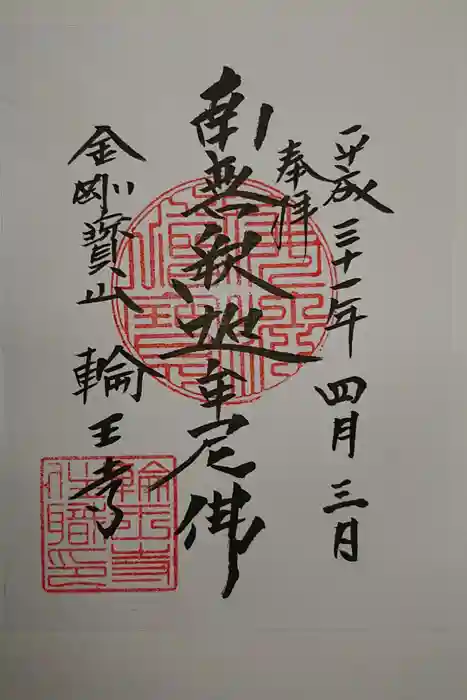 平成三十一年四月三日
奉拝
南無釈迦牟尼佛
金剛寶山 輪王寺
輪王寺
住職印